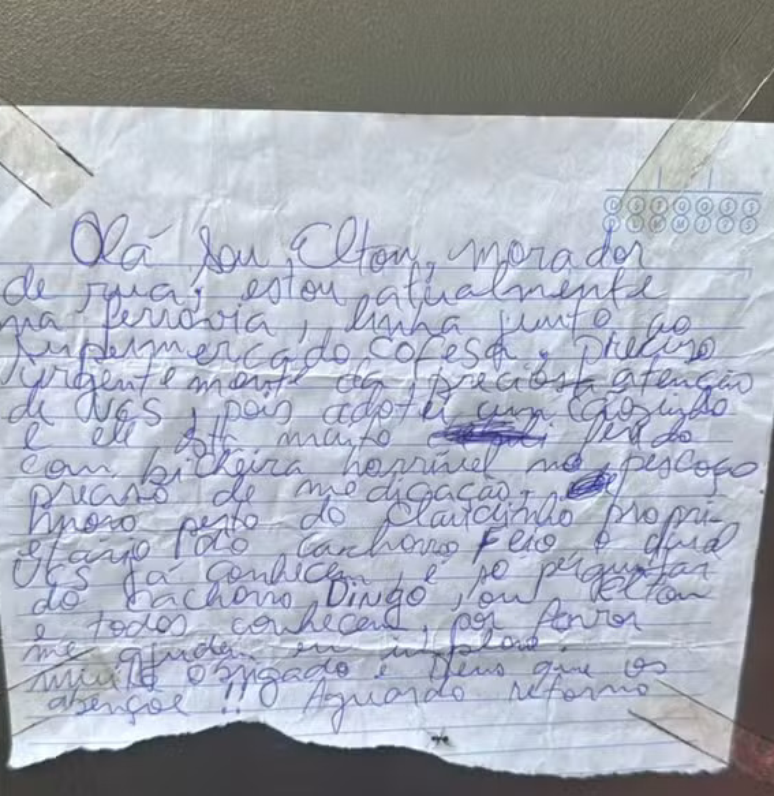 D S T Q Q S S
D L M M J V S
Olá sou Elton, morador
de rua, estou atualmente
na ferrovia, linha junto ao
supermercado Cofesa, preciso
urgentemente da preciosa atenção
de vcs, pois adotei um cãozinho
e ele stá muito ferido
com bicheira horrível no pescoço
preciso de medicação.
moro perto do Claudinho propri-
etário do cachorro Feio o qual
vcs já conhecem, e só perguntar
do cachorro Dingo, ou Elton
e todos conhecem, por favor
me ajudem eu imploro.
muito obrigado e Deus que os
abençoe !! Aguardo retorno